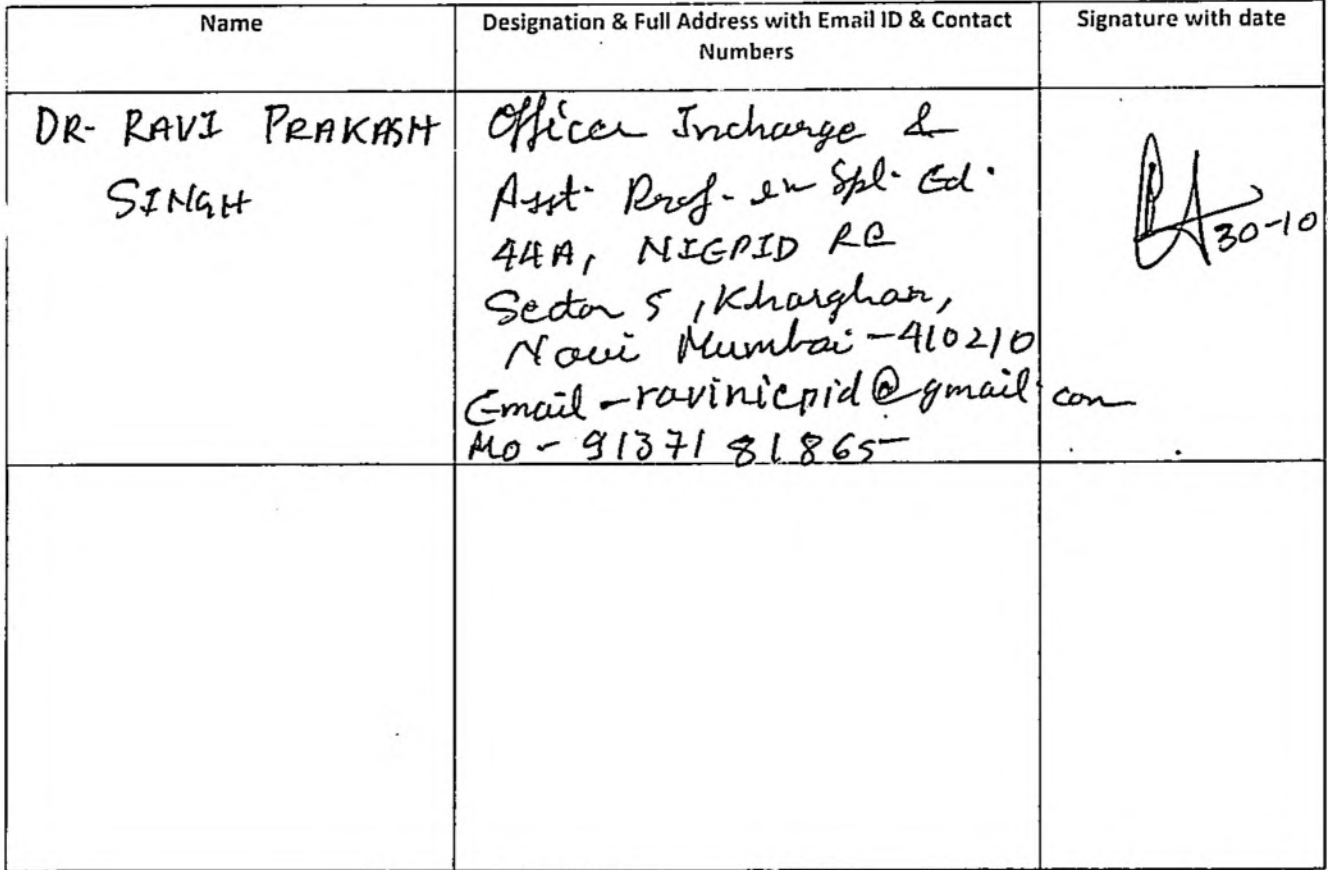 Name
Designation & Full Address with Email ID & Contact
Numbers
Signature with date
DR- RAVI PRAKASH
SINGH
Officer Incharge &
Asst. Prof- in Spl. Ed.
44A, NIEPID RC
Sector 5, Kharghar,
Navi Mumbai-410210
Email-raviniepid@gmail.com
Mo- 9137181865
30-10